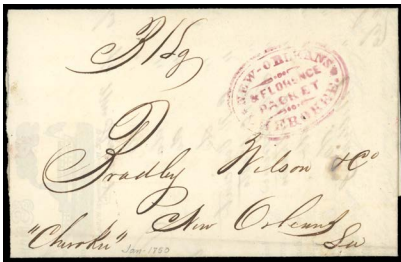 NEW-ORLEANS
& FLORENCE
PACKET
CHEROKEE.
Bradley Wilson & Co
New Orleans
La
"Cherokee"
Jan. 1850